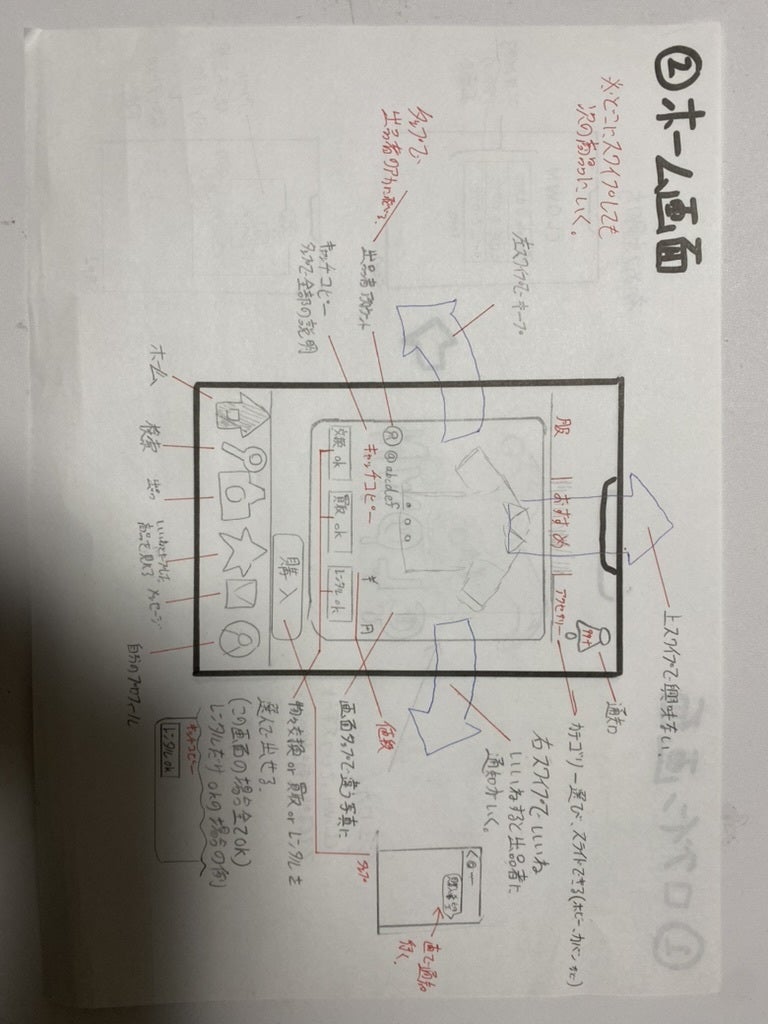 ②ホーム画面
※どこにスワイプしても
次の商品にいく。
タップで、
出品者のアカに飛べる。
左スワイプでキープ
上スワイプで興味ない
通知
出品者アカウント
キャッチコピー
タップで全部の説明
服
おすすめ
アクセサリー
カテゴリー選び、スライドできる(ホビー、カバンなど)
右スワイプでいいね
いいねすると出品者に
通知がいく。
@abcdef
キャッチコピー
¥ 円
交換 ok
買取 ok
レンタル ok
購入
値段
画面タップで違う写真に
物々交換 or 買取 or レンタルを
選んで出せる。
(この画面の場合全てOK)
レンタルだけokの場合の例
キャッチコピー
レンタルok
タップ
直で通知
行く。
ホーム
検索
出品
商品を見れる
メッセージ
自分のプロフィール